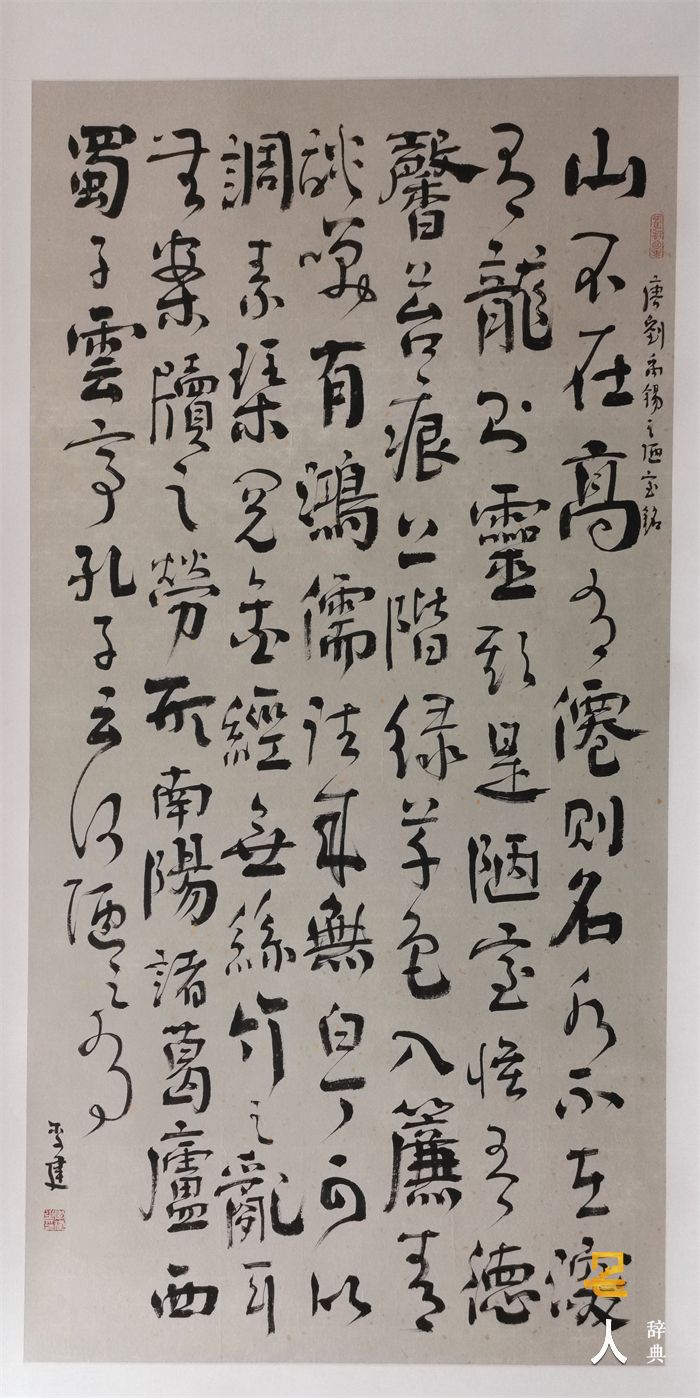 唐劉禹錫之陋室銘
山不在高有僊則名水不在深
有龍則靈斯是陋室惟吾德
馨苔痕上階緑草色入簾青
談笑有鴻儒往來無白丁可以
調素琴閲金經無絲竹之亂耳
無案牘之勞形南陽諸葛廬西
蜀子雲亭孔子云何陋之有
李建
名人
辞典